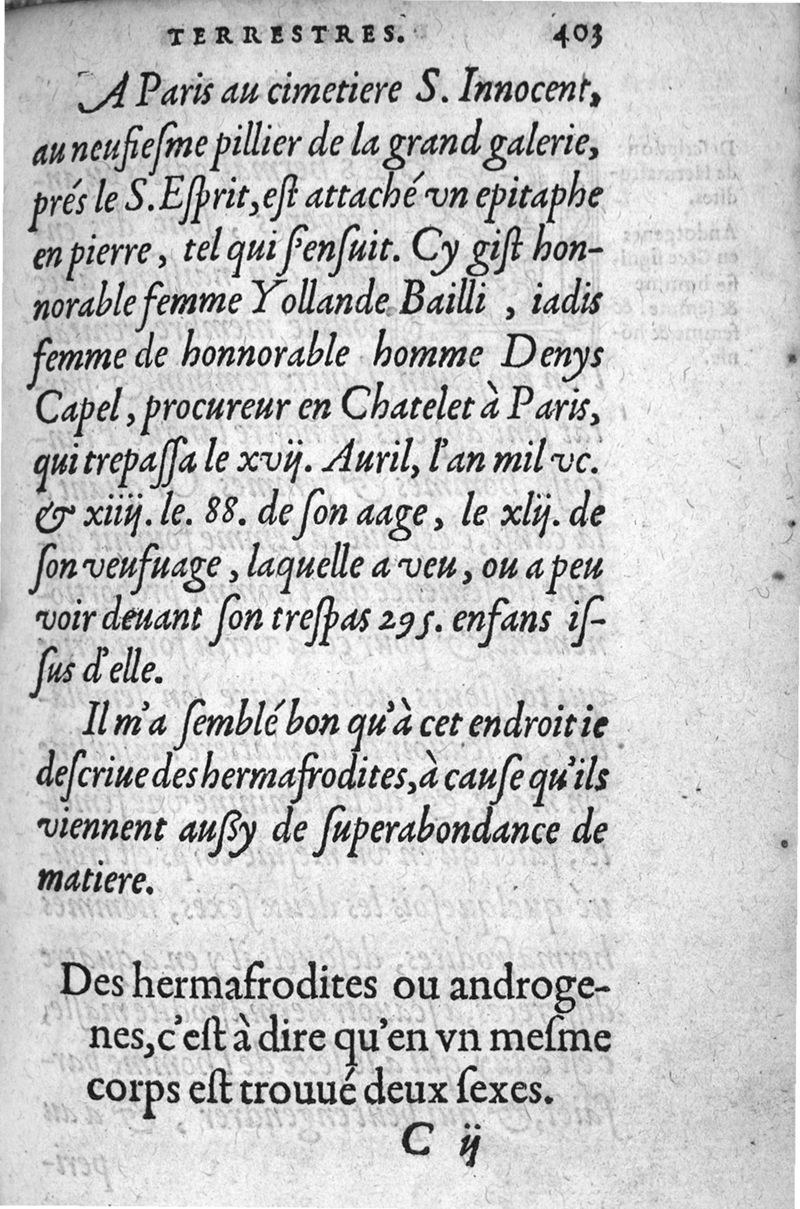 TERRESTRES. 403
A Paris au cimetiere S. Innocent,
au neufieſme pillier de la grand galerie,
prés le S. Eſprit, eſt attaché vn epitaphe
en pierre, tel qui ſ'enſuit. Cy giſt hon-
norable femme Yollande Bailli , iadis
femme de honnorable homme Denys
Capel, procureur en Chatelet à Paris,
qui trepaſſa le xvij. Auril, l'an mil vc.
& xiiij. le. 88. de ſon aage, le xlij. de
ſon veufuage, laquelle a veu, ou a peu
voir deuant ſon treſpas 295. enfans iſ-
ſus d'elle.
Il m'a ſemblé bon qu'à cet endroit ie
deſcriue des hermafrodites, à cauſe qu'ils
viennent auſſy de ſuperabondance de
matiere.
Des hermafrodites ou androge-
nes, c'eſt à dire qu'en vn meſme
corps eſt trouué deux ſexes.
C ij